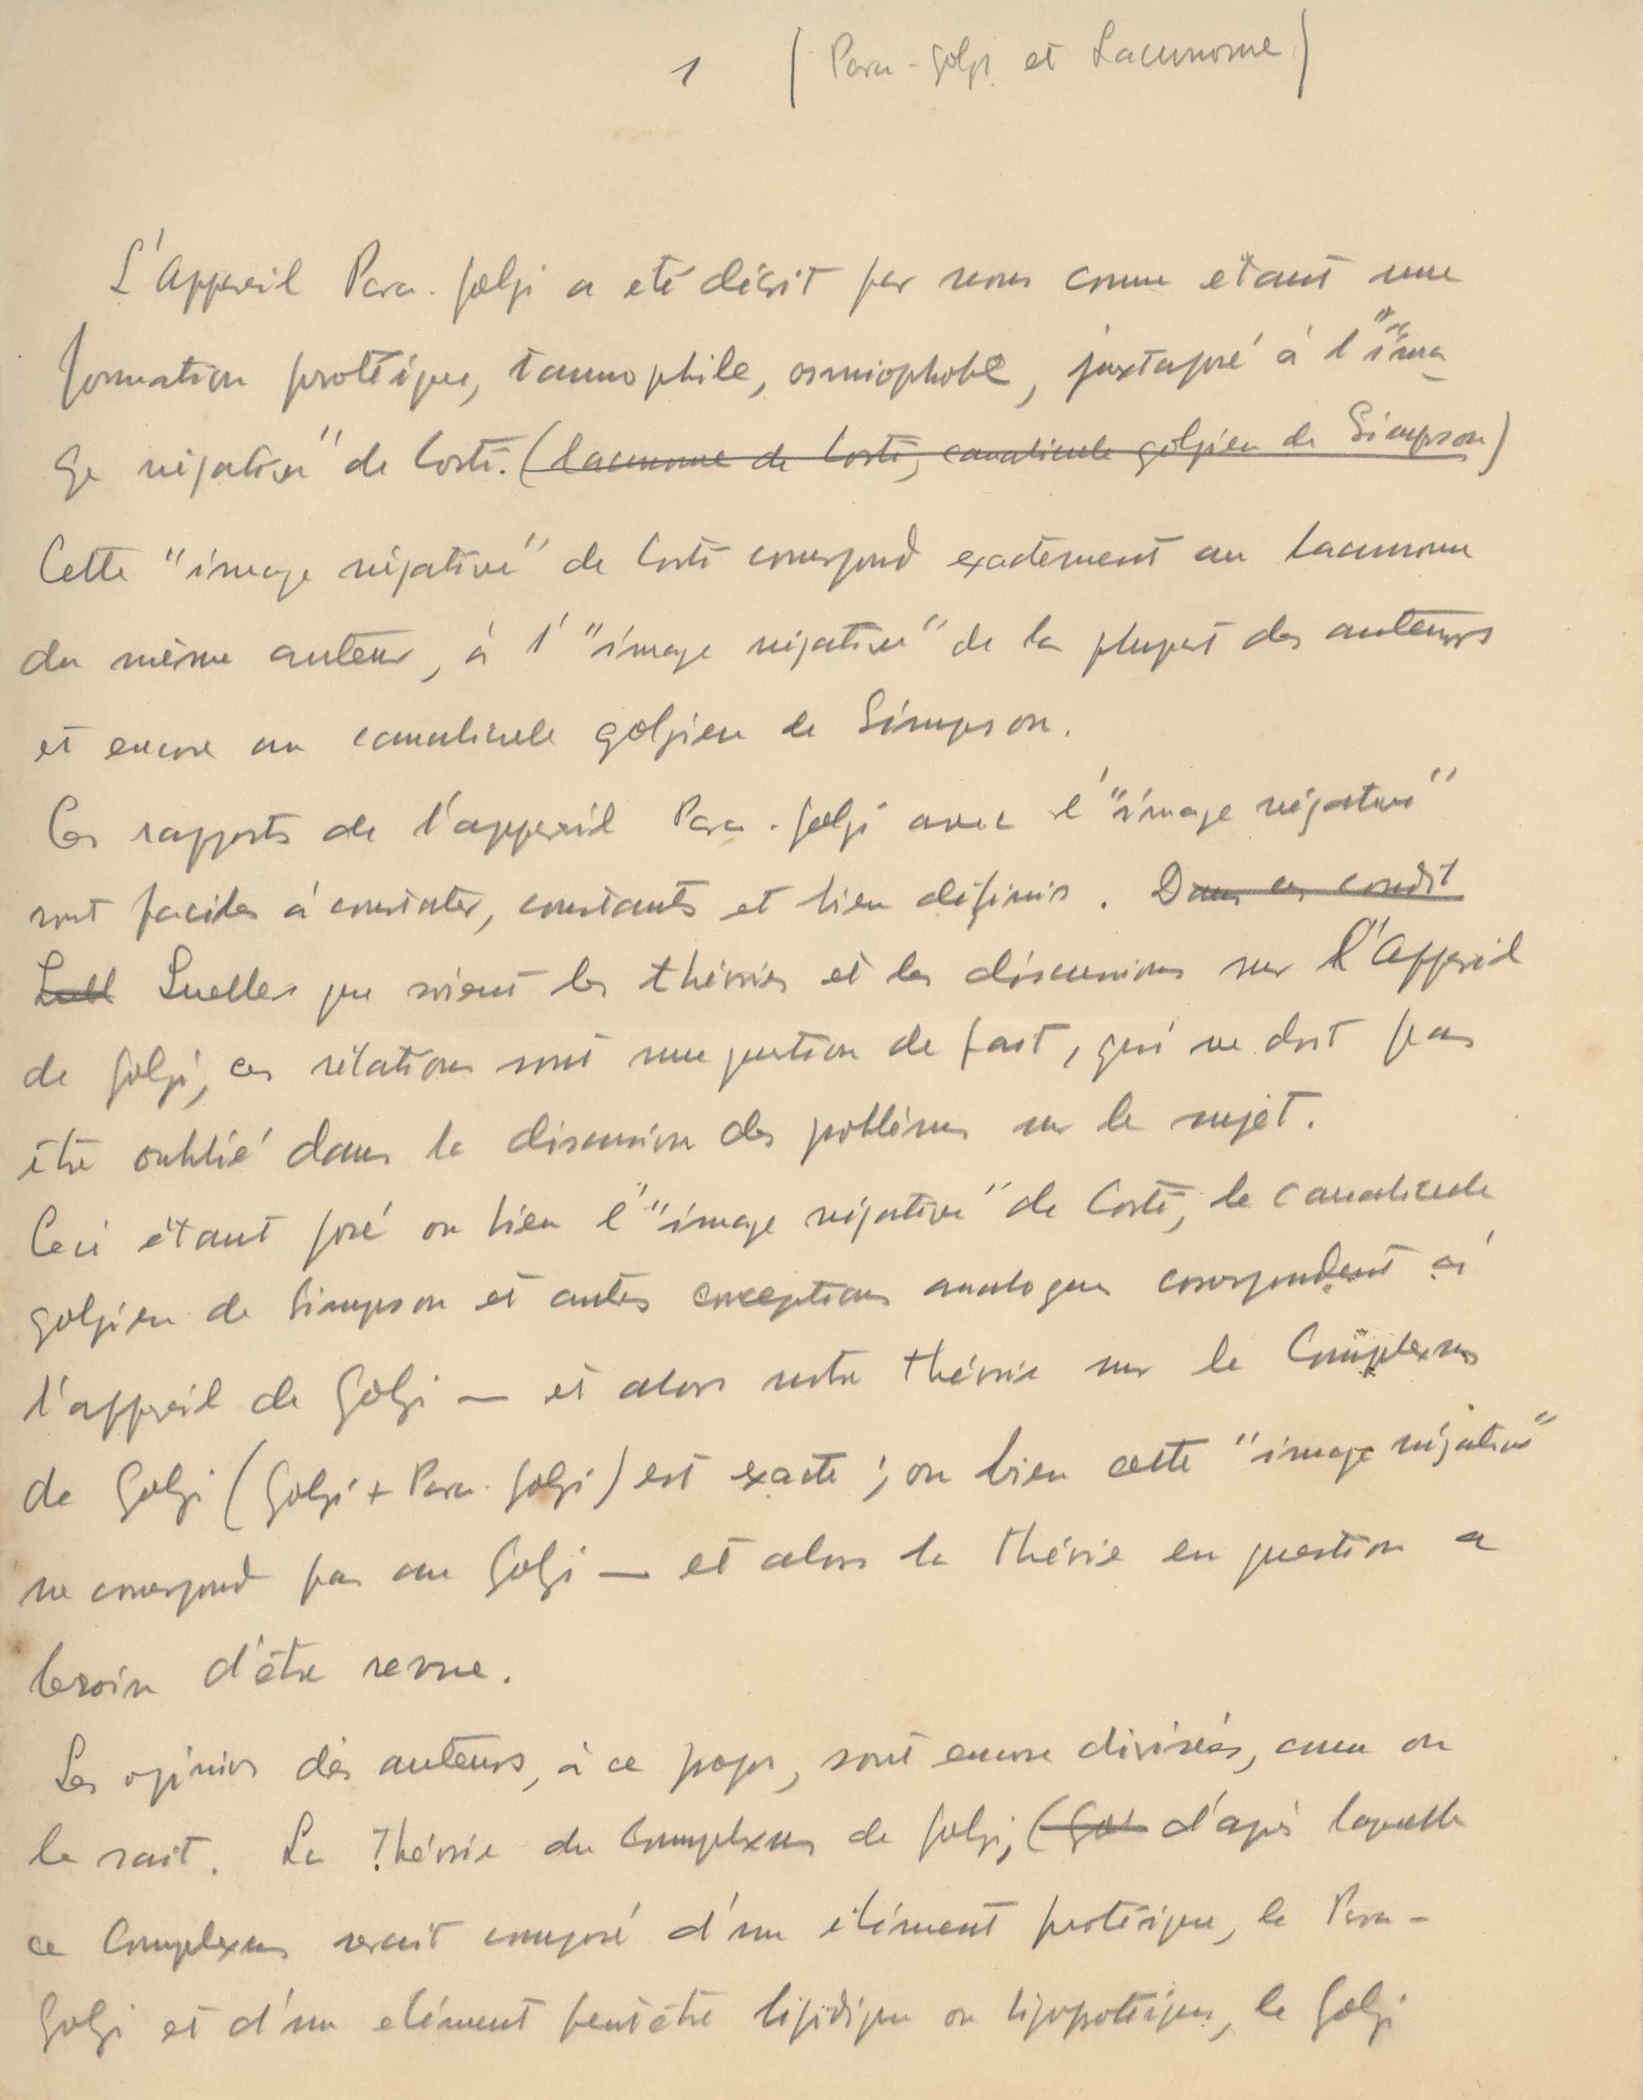 1 (Para-Golgi et Lacunome)
L'Appareil Para-Golgi a eté décrit par nous comme etant une
formation protéique, tannophile, osmiophobe, juxtaposé à l'"ima-
ge négative" de Corti. (lacunome de Corti, canalicule golgien de Simpson)
Cette "image négative" de Corti correspond exactement au lacunome
du même auteur, à l'"image négative" de la plupart des auteurs
et encore au canalicule golgien de Simpson.
Ces rapports de l'appareil Para-Golgi avec l'"image négative"
sont faciles à constater, constants et bien définis. Dans ces condit
Quell Quelles que soient les théories et les discussions sur l'Appareil
de Golgi, ces rélations sont une question de fait, qui ne doit pas
être oublié dans la discussion des problèmes sur le sujet.
Ceci étant posé ou bien l'"image négative" de Corti, le canalicule
golgien de Simpson et autres conceptions analogues correspondent à
l'appareil de Golgi — et alors notre théorie sur le Complexus
de Golgi (Golgi + Para-Golgi) est exacte; ou bien cette "image négative"
ne correspond pas au Golgi — et alors la théorie en question a
besoin d'être revue.
Les opinions des auteurs, à ce propos, sont encore divisées, comme on
le sait. La Théorie du Complexus de Golgi, (Gol d'après laquelle
ce Complexus serait composé d'un élément protéique, le Para-
Golgi et d'un elément peut être lipidique ou lipoprotéique, le Golgi